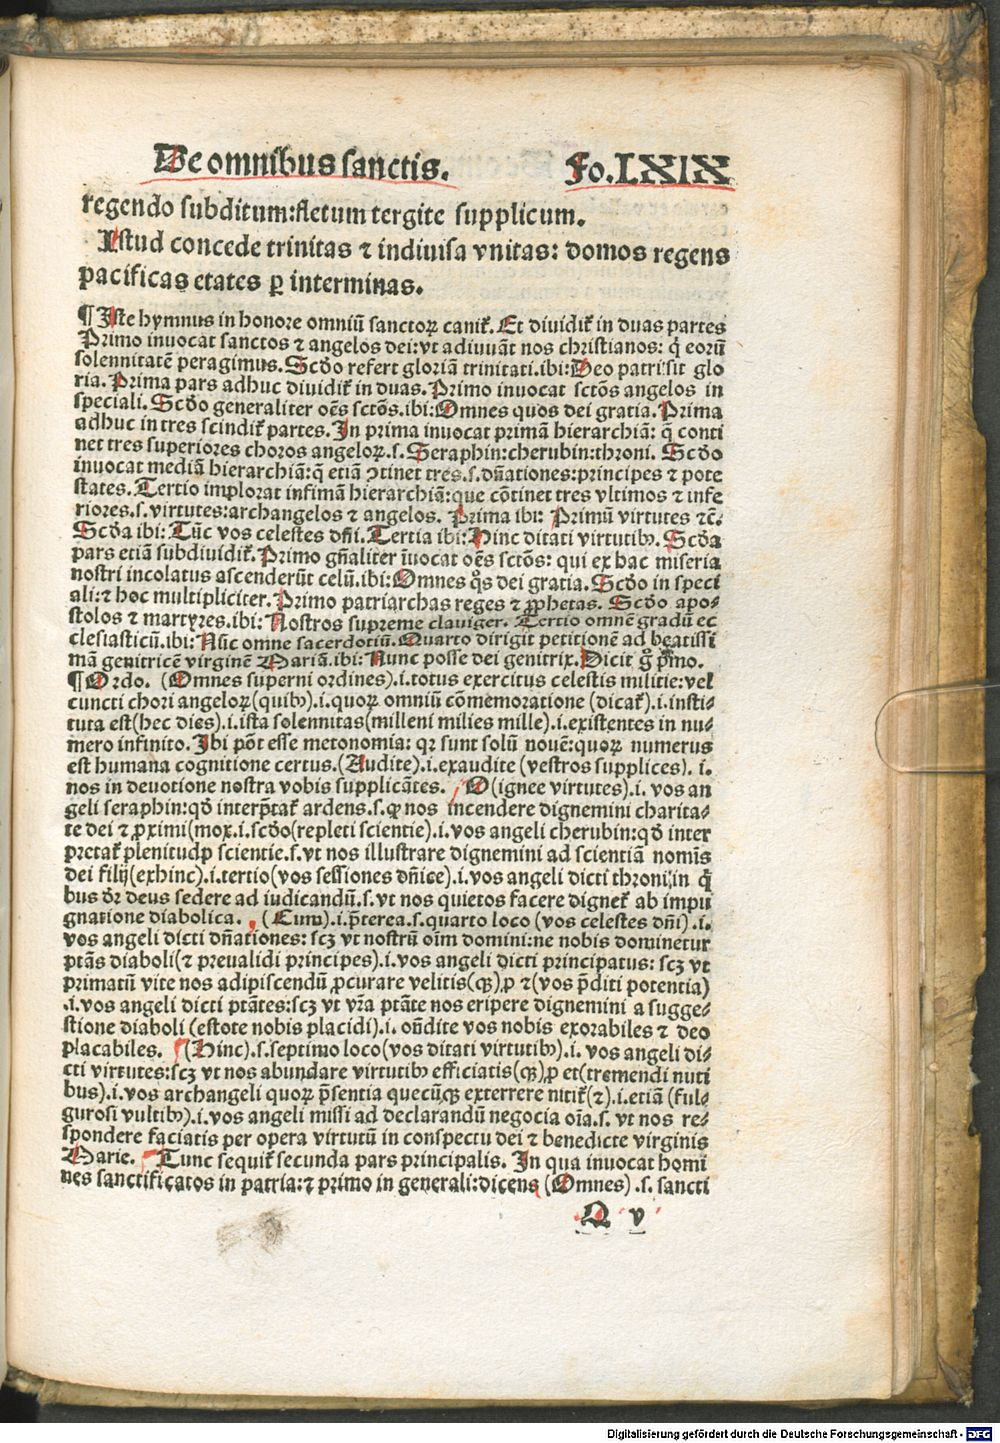 De omnibus sanctis. Fo.LXIX
regendo subditum:fletum tergite supplicum.
Istud concede trinitas ⁊ indiuisa vnitas: domos regens
pacificas etates ꝑ interminas.
¶ Iste hymnus in honore omniū sanctoꝝ canit᷑. Et diuidit᷑ in duas partes
Primo inuocat sanctos ⁊ angelos dei:vt adiuuāt nos christianos: q̄ eorū
solennitatē peragimus. Scḋo refert gloriā trinitati.ibi:Deo patri sit glo
ria. Prima pars adhuc diuidit᷑ in duas. Primo inuocat sctōs angelos in
speciali. Scḋo generaliter oēs sctōs.ibi:Omnes quos dei gratia. Prima
adhuc in tres scindit᷑ partes. In prima inuocat primā hierarchiā: q̄ conti
net tres superiores choros angeloꝝ.s. Seraphin:cherubin:throni. Scḋo
inuocat mediā hierarchiā:q̄ etiā ↄtinet tres.s.dn̄ationes:principes ⁊ pote
states. Tertio implorat infimā hierarchiā:que cōtinet tres vltimos ⁊ infe
riores.s.virtutes:archangelos ⁊ angelos. Prima ibi: Primū virtutes ⁊c̄.
Scḋa ibi: Tūc vos celestes dn̄i. Tertia ibi:Hinc ditati virtutibꝰ. Scḋa
pars etiam subdiuidit᷑. Primo gn̄aliter īuocat oēs sctōs: qui ex hac miseria
nostri incolatus ascenderūt celū.ibi:Omnes qͦs dei gratia. Scḋo in speci
ali:⁊ hoc multipliciter. Primo patriarchas reges ⁊ ꝓphetas. Scḋo apo-
stolos ⁊ martyres.ibi: Nostros supreme clauiger. Tertio omnē gradū ec
clesiasticū.ibi: Nūc omne sacerdotiū. Quarto dirigit petitionē ad beatissi
mā genitricē virginē Mariā.ibi: Nunc posse dei genitrix. Dicit gͦ pͥmo.
¶ Ordo. (Omnes superni ordines).i.totus exercitus celestis militie:vel
cuncti chori angeloꝝ(quibꝰ).i.quoꝝ omniū cōmemoratione (dicat᷑).i.insti-
tuta est(hec dies).i.ista solennitas(milleni milies mille).i.existentes in nu-
mero infinito. Ibi pōt esse metonomia: qꝛ sunt solū nouē:quoꝝ numerus
est humana cognitione certus.(Audite).i.exaudite (vestros supplices). i.
nos in deuotione nostra vobis supplicātes. O(ignee virtutes).i. vos an
geli seraphin:qḋ interp̄tat᷑ ardens.s.ꝙ nos incendere dignemini charita-
te dei ⁊ ꝓximi(mox.i.scḋo(repleti scientie).i.vos angeli cherubin:qḋ inter
pretat᷑ plenitudo scientie.s.vt nos illustrare dignemini ad scientiā nomīs
dei filij(exhinc).i.tertio(vos sessiones dn̄ice).i.vos angeli dicti throni,in q̄
bus dr̄ deus sedere ad iudicandū.s.vt nos quietos facere dignet᷑ ab impu
gnatione diabolica. (Cum).i.p̄terea.s.quarto loco (vos celestes dn̄i) .i.
vos angeli dicti dn̄ationes: scꝫ vt nostrū oīm domini:ne nobis dominetur
ptās diaboli(⁊ preualidi principes).i.vos angeli dicti principatus: scꝫ vt
primatū vite nos adipiscendū ꝓcurare velitis(qꝫ).ꝓ ⁊(vos p̄diti potentia)
.i.vos angeli dicti ptātes:scꝫ vt vr̄a ptāte nos eripere dignemini a sugge-
stione diaboli (estote nobis placidi).i. on̄dite vos nobis exorabiles ⁊ deo
placabiles. (Hinc).s.septimo loco(vos ditati virtutibꝰ).i. vos angeli di-
cti virtutes:scꝫ vt nos abundare virtutibꝰ efficiatis(qꝫ).ꝓ et(tremendi nuti
bus).i.vos archangeli quoꝝ p̄sentia quecūqꝫ exterrere nitit᷑(⁊).i.etiā (ful-
gurosi vultibꝰ).i.vos angeli missi ad declarandū negocia oīa.s. vt nos re-
spondere faciatis per opera virtutū in conspectu dei ⁊ benedicte virginis
Marie. Tunc sequit᷑ secunda pars principalis. In qua inuocat homi
nes sanctificatos in patria:⁊ primo in generali:dicens (Omnes) .s. sancti
Q v
Digitalisierung gefördert durch die Deutsche Forschungsgemeinschaft - DFG